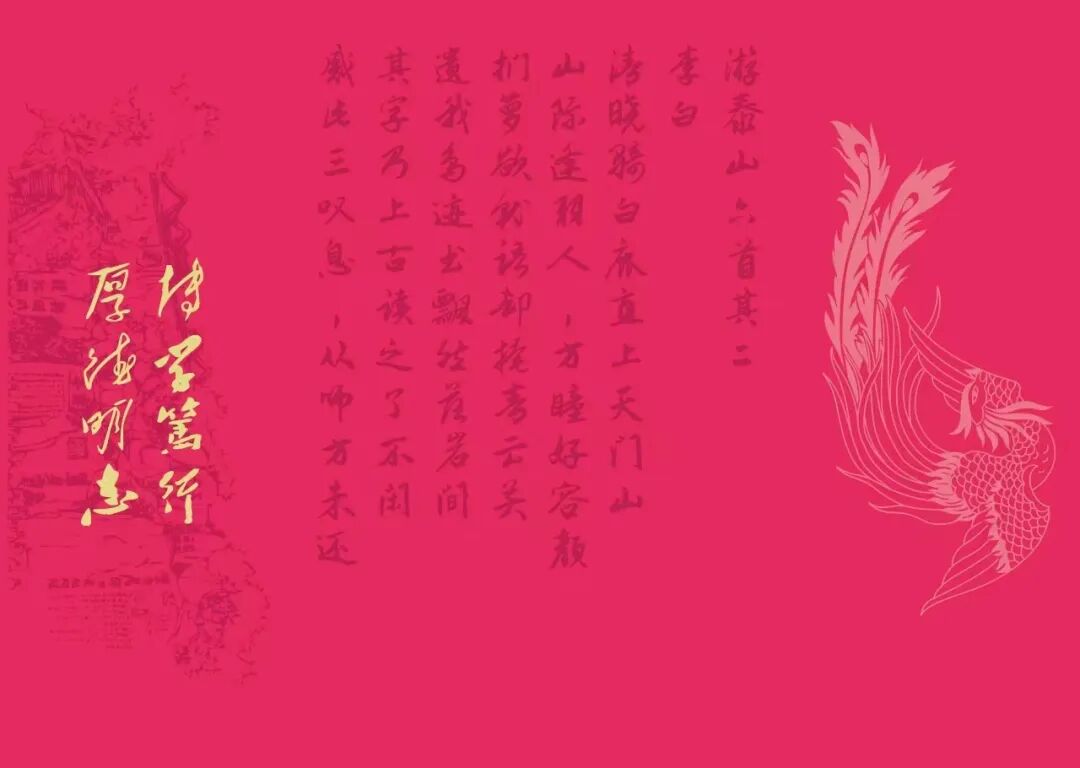 游泰山六首其二
李白
清晓骑白鹿直上天门山
山际逢羽人，方瞳好容颜
扪萝欲就语却掩青云关
遗我鸟迹书飘然落岩间
其字乃上古读之了不闲
感此三叹息，从师方未还
博学篤行
厚德明志